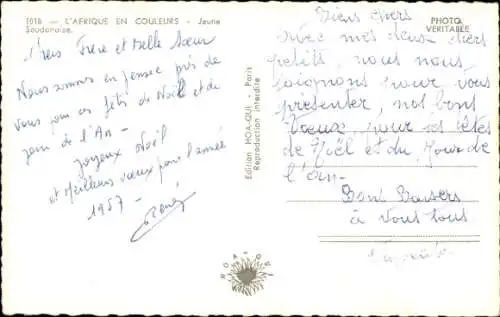 1018 - L'AFRIQUE EN COULEURS - Jeune
Soudanaise.
Frère et Belle Sœur
Nous sommes en pensée près de
vous pour ces fêtes de Noël et du
jour de l'An -
Joyeux Noël
et Meilleurs vœux pour l'année
1957 -
René
Edition HOA-QUI - Paris
Reproduction interdite
PHOTO
VERITABLE
Biens chers
Avec mes deux chers
petits, nous nous
joignons pour vous
présenter, nos bons
Vœux, pour les fêtes
de Noël et du Jour de
l'an.
Bons Baisers
à vous tous
HOA-QUI